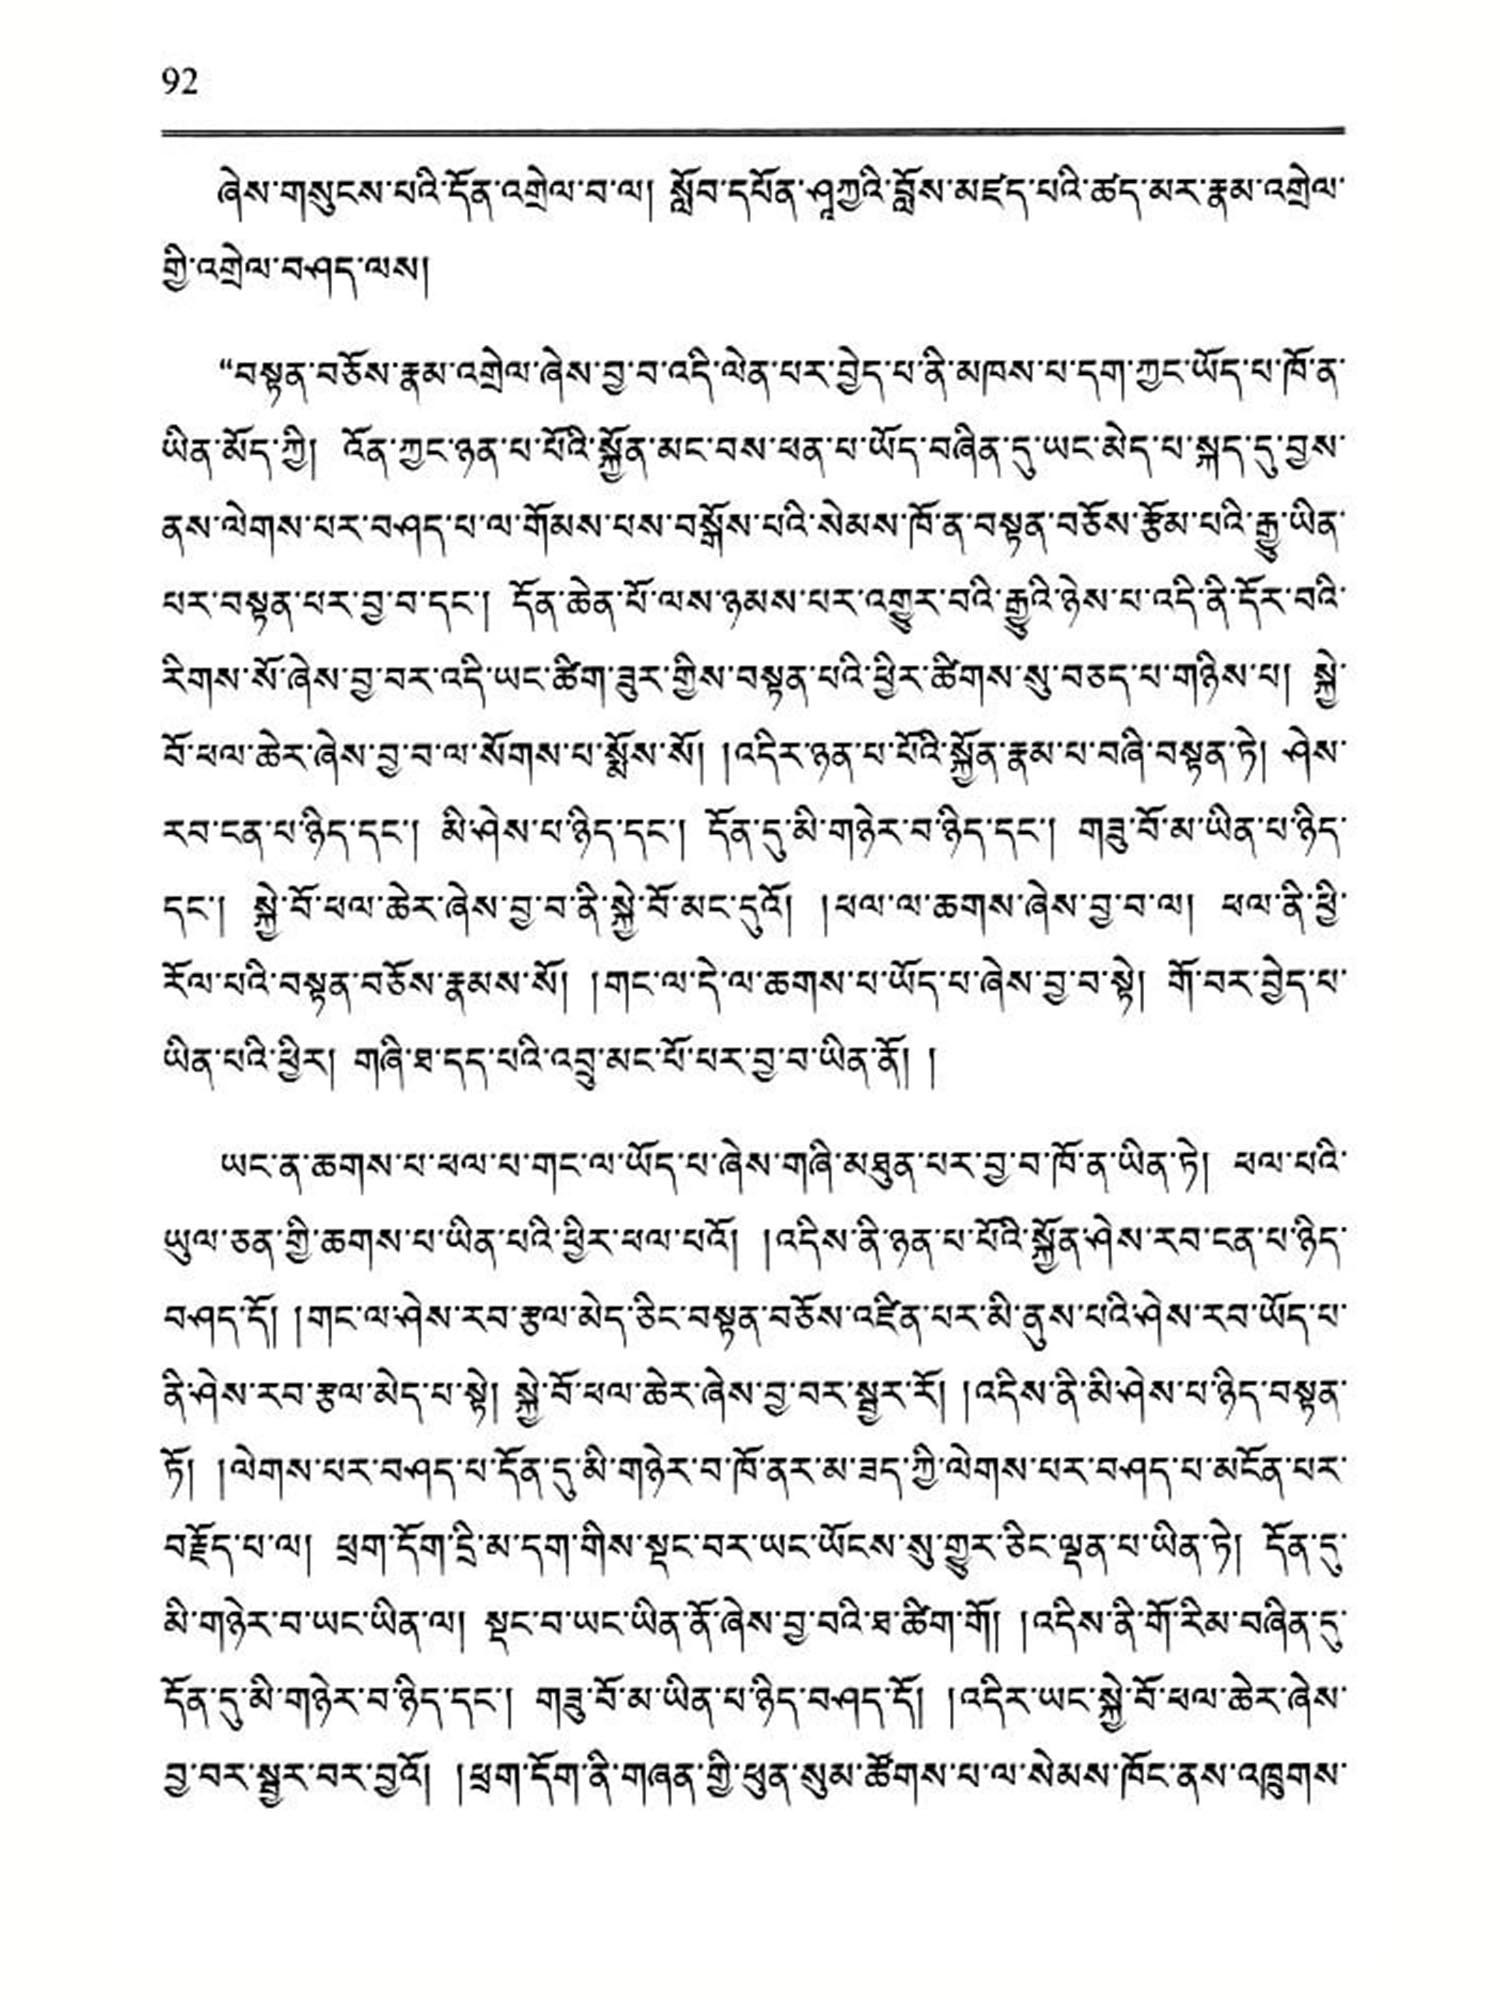 92
ཞེས་གསུངས་པའི་དོན་འགྲེལ་བ་ལ། སློབ་དཔོན་ཤཱཀྱའི་བློས་མཛད་པའི་ཚད་མར་རྣམ་འགྲེལ་
གྱི་འགྲེལ་བཤད་ལས།
“བསྟན་བཅོས་རྣམ་འགྲེལ་ཞེས་བྱ་བ་འདི་ལེན་པར་བྱེད་པ་ནི་མཁས་པ་དག་ཀྱང་ཡོད་པ་ཁོ་ན་
ཡིན་མོད་ཀྱི། འོན་ཀྱང་ཉན་པ་པོའི་སྐྱོན་མང་བས་ཕན་པ་ཡོད་བཞིན་དུ་ཡང་མེད་པ་སྐད་དུ་བྱས་
ནས་ལེགས་པར་བཤད་པ་ལ་གོམས་པས་བསྒོས་པའི་སེམས་ཁོ་ན་བསྟན་བཅོས་རྩོམ་པའི་རྒྱུ་ཡིན་
པར་བསྟན་པར་བྱ་བ་དང་། དོན་ཆེན་པོ་ལས་ཉམས་པར་འགྱུར་བའི་རྒྱུའི་ཉེས་པ་འདི་ནི་དོར་བའི་
རིགས་སོ་ཞེས་བྱ་བར་འདི་ཡང་ཚིག་ཟུར་གྱིས་བསྟན་པའི་ཕྱིར་ཚིགས་སུ་བཅད་པ་གཉིས་པ། སྐྱེ་
བོ་ཕལ་ཆེར་ཞེས་བྱ་བ་ལ་སོགས་པ་སྨོས་སོ། །འདིར་ཉན་པ་པོའི་སྐྱོན་རྣམ་པ་བཞི་བསྟན་ཏེ། ཤེས་
རབ་ངན་པ་ཉིད་དང་། མི་ཤེས་པ་ཉིད་དང་། དོན་དུ་མི་གཉེར་བ་ཉིད་དང་། གཟུ་བོ་མ་ཡིན་པ་ཉིད་
དང་། སྐྱེ་བོ་ཕལ་ཆེར་ཞེས་བྱ་བ་ནི་སྐྱེ་བོ་མང་དུའོ། །ཕལ་ལ་ཆགས་ཞེས་བྱ་བ་ལ། ཕལ་ནི་ཕྱི་
རོལ་པའི་བསྟན་བཅོས་རྣམས་སོ། །གང་ལ་དེ་ལ་ཆགས་པ་ཡོད་པ་ཞེས་བྱ་བ་སྟེ། གོ་བར་བྱེད་པ་
ཡིན་པའི་ཕྱིར། གཞི་ཐ་དད་པའི་འབྲུ་མང་པོ་པར་བྱ་བ་ཡིན་ནོ། །
ཡང་ན་ཆགས་པ་ཕལ་པ་གང་ལ་ཡོད་པ་ཞེས་གཞི་མཐུན་པར་བྱ་བ་ཁོ་ན་ཡིན་ཏེ། ཕལ་པའི་
ཡུལ་ཅན་གྱི་ཆགས་པ་ཡིན་པའི་ཕྱིར་ཕལ་པའོ། །འདིས་ནི་ཉན་པ་པོའི་སྐྱོན་ཤེས་རབ་ངན་པ་ཉིད་
བཤད་དོ། །གང་ལ་ཤེས་རབ་རྩལ་མེད་ཅིང་བསྟན་བཅོས་འཛིན་པར་མི་ནུས་པའི་ཤེས་རབ་ཡོད་པ་
ནི་ཤེས་རབ་རྩལ་མེད་པ་སྟེ། སྐྱེ་བོ་ཕལ་ཆེར་ཞེས་བྱ་བར་སྦྱར་རོ། །འདིས་ནི་མི་ཤེས་པ་ཉིད་བསྟན་
ཏོ། །ལེགས་པར་བཤད་པ་དོན་དུ་མི་གཉེར་བ་ཁོ་ནར་མ་ཟད་ཀྱི་ལེགས་པར་བཤད་པ་མངོན་པར་
བརྗོད་པ་ལ། ཕྲག་དོག་དྲི་མ་དག་གིས་སྡང་བར་ཡང་ཡོངས་སུ་གྱུར་ཅིང་ལྡན་པ་ཡིན་ཏེ། དོན་དུ་
མི་གཉེར་བ་ཡང་ཡིན་ལ། སྡང་བ་ཡང་ཡིན་ནོ་ཞེས་བྱ་བའི་ཐ་ཚིག་གོ། །འདིས་ནི་གོ་རིམ་བཞིན་དུ་
དོན་དུ་མི་གཉེར་བ་ཉིད་དང་། གཟུ་བོ་མ་ཡིན་པ་ཉིད་བཤད་དོ། །འདིར་ཡང་སྐྱེ་བོ་ཕལ་ཆེར་ཞེས་
བྱ་བར་སྦྱར་བར་བྱའོ། །ཕྲག་དོག་ནི་གཞན་གྱི་ཕུན་སུམ་ཚོགས་པ་ལ་སེམས་ཁོང་ནས་འཁྲུགས་